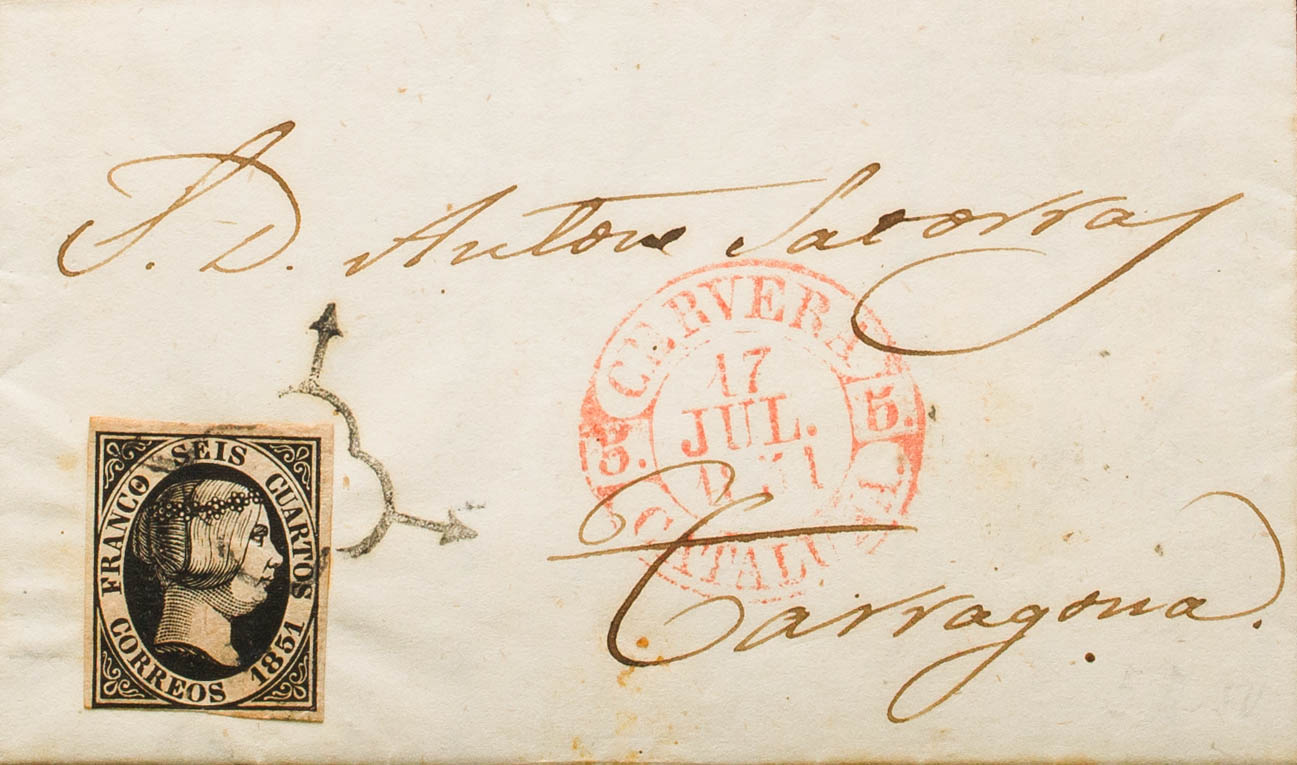 S. D. Antone Sacorras
CERVERA
17
JUL.
1851
5. 5.
CATALUÑA
Tarragona.
FRANCO SEIS CUARTOS
CORREOS 1851